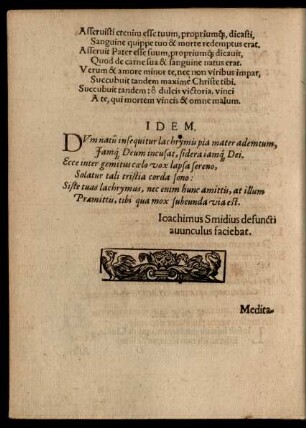 Asseruisti etenim esse tuum, propriumq́, dicasti,
Sanguine quippe tuo & morte redemptus erat.
Asseruit Pater esse suum, propriumq́ dicauit,
Quod de carne sua & sanguine natus erat.
Verum & amore minor te, nec non viribus impar,
Succubuit tandem maxime Christe tibi.
Succubuit tandem: ô dulcis victoria, vinci
A te, qui mortem vincis & omne malum.
IDEM.
DVm natũ insequitur lachrymis pia mater ademtum,
Jamq́ Deum incusat, sidera iamq́ Dei.
Ecce inter gemitus cælo vox lapsa sereno,
Solatur tali tristia corda sono:
Siste tuas lachrymas, nec enim hunc amittis, at illum
Præmittis, tibi qua mox subeunda via est.
Ioachimus Smidius defuncti
avunculus faciebat.
Medita-